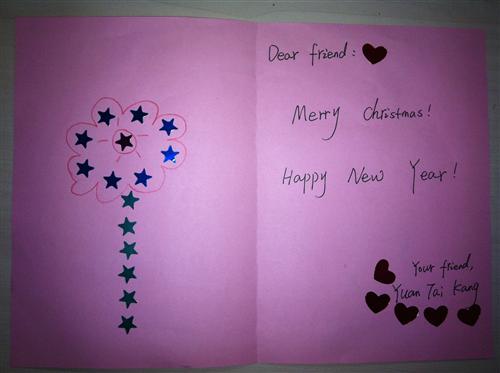 Dear friend:
Merry Christmas!
Happy New Year!
Your friend,
Yuan Tai Kang